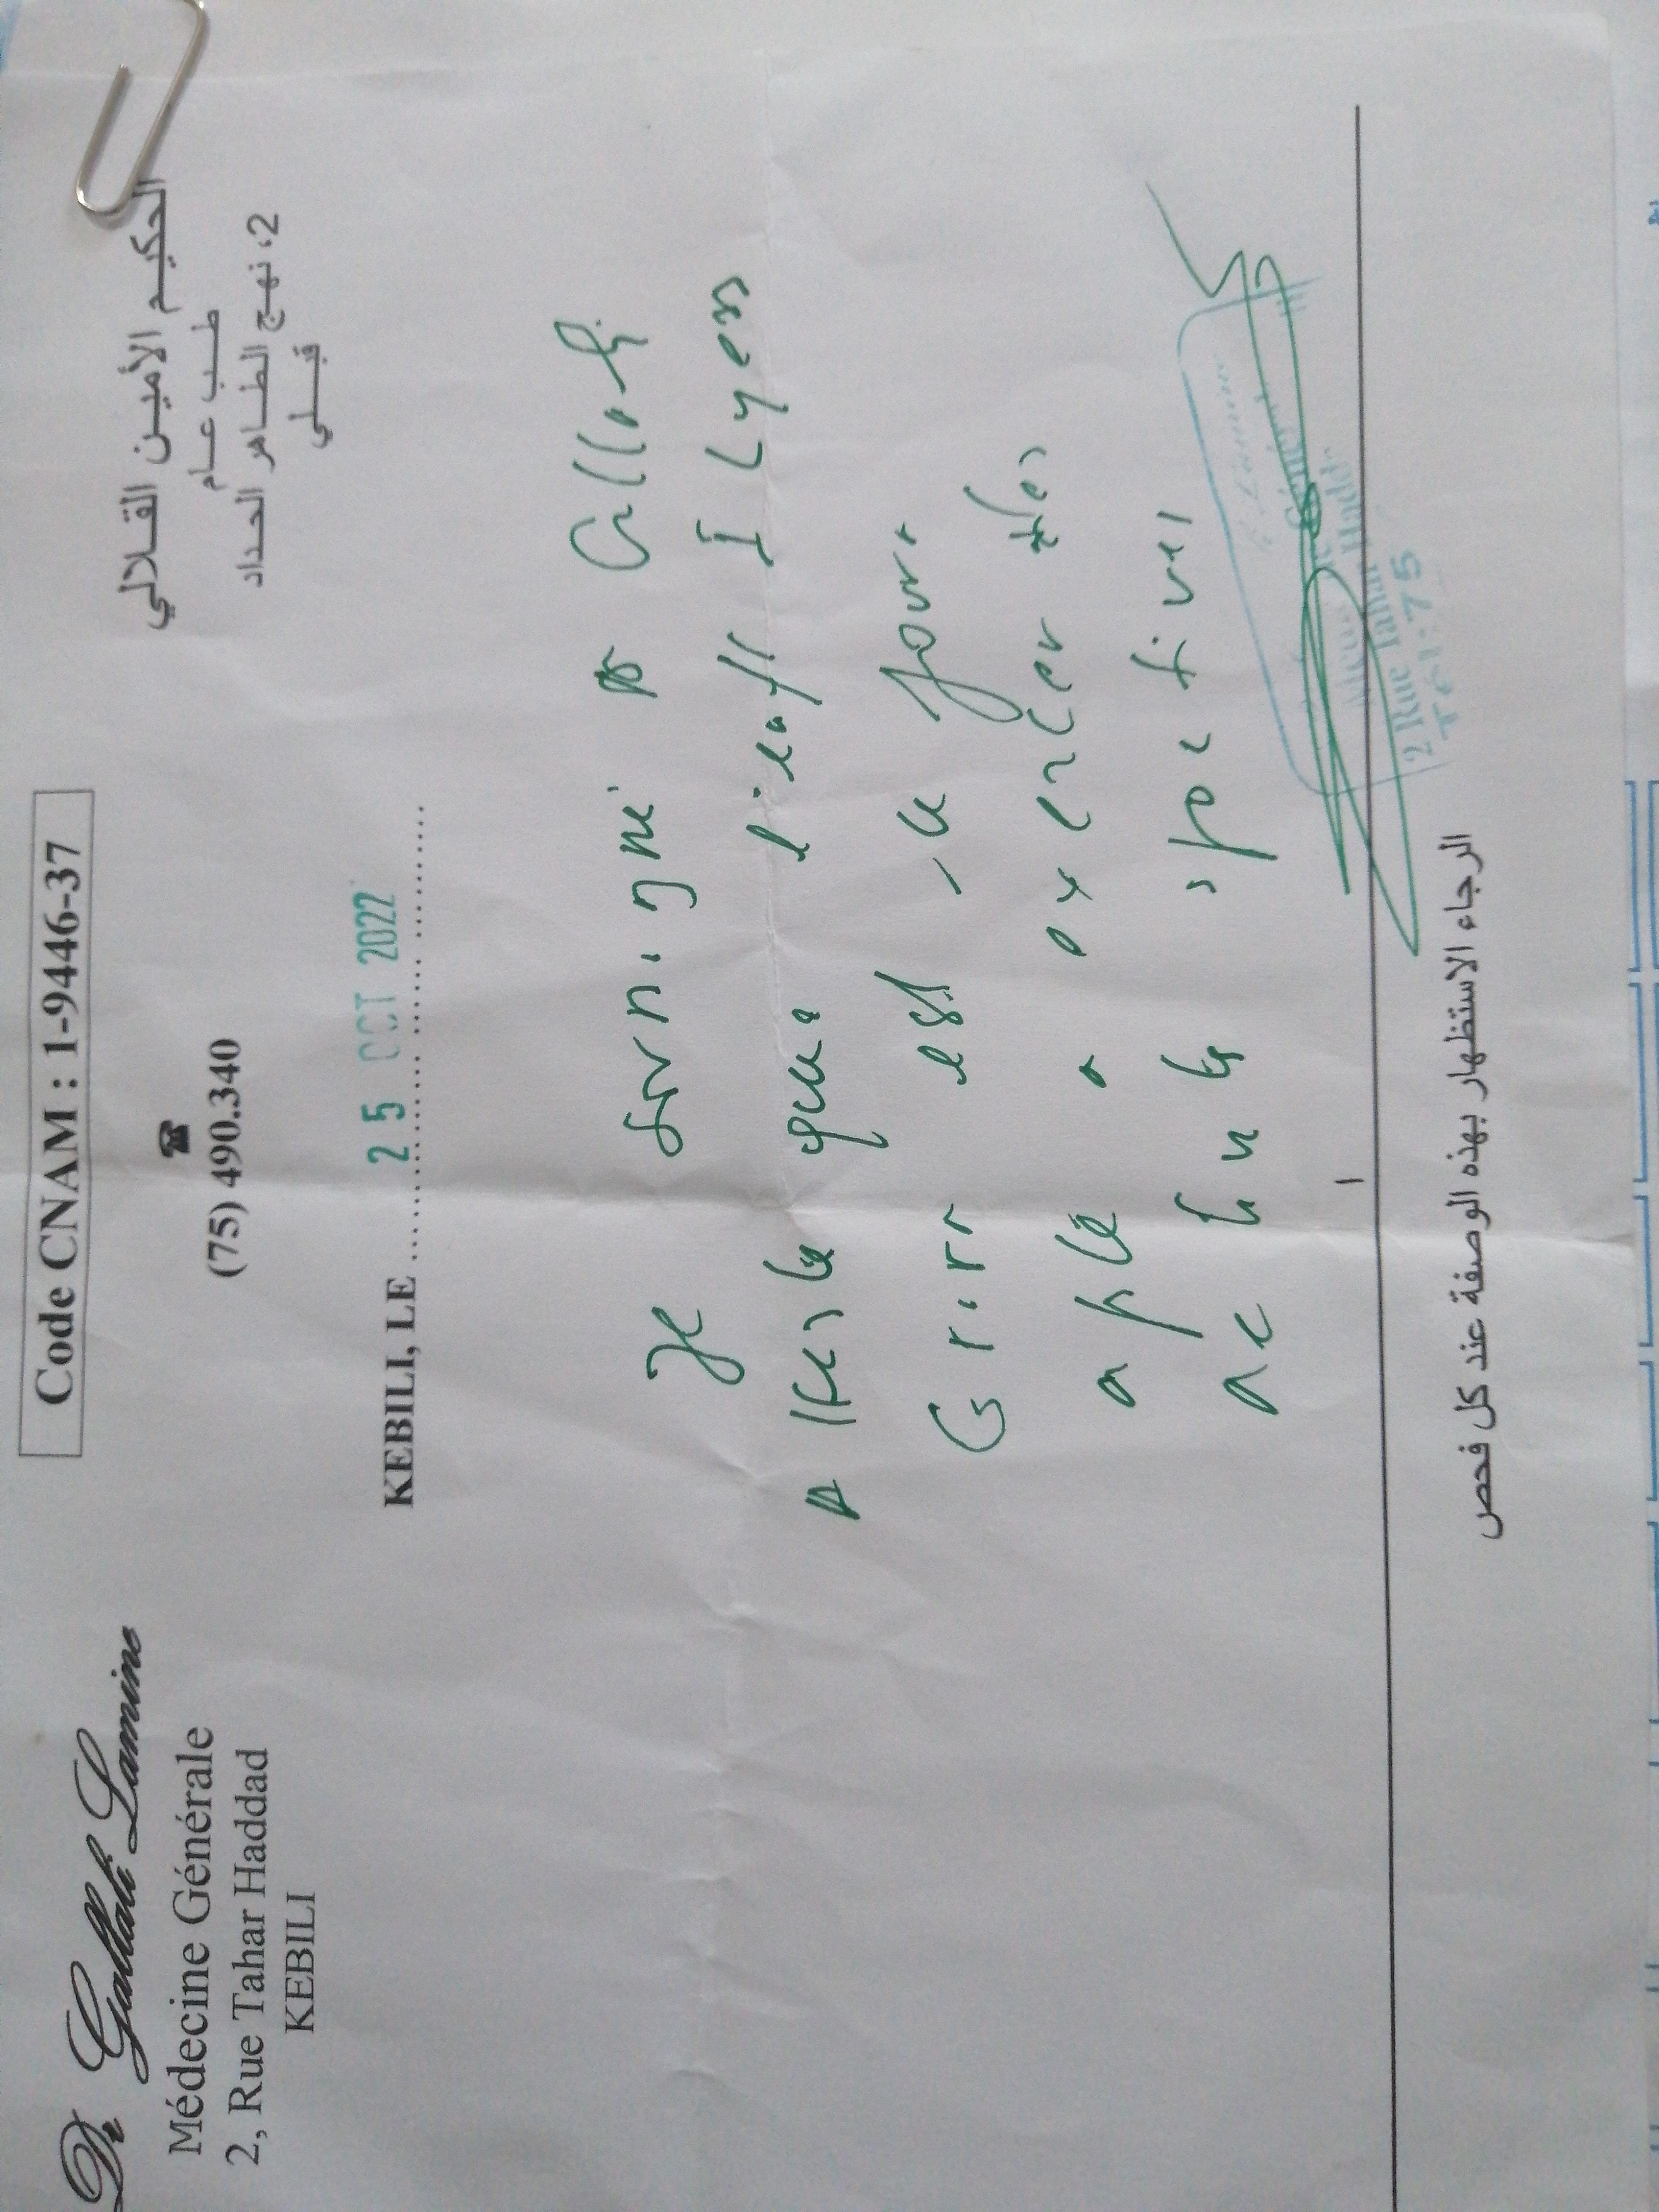 Dr Gallali Lamine
Médecine Générale
2, Rue Tahar Haddad
KEBILI
Code CNAM : 1-9446-37
☎
(75) 490.340
الحكيم الأمين القلالي
طب عام
2، نهج الطاهر الحداد
قبلي
KEBILI, LE 25 OCT 2022
Je soussigné Dr Gallali
Atteste que l'enfant Ilyes
est ce jour
apte a exercer
2 Rue Tahar Haddad
Tél: 75
الرجاء الاستظهار بهذه الوصفة عند كل فحص